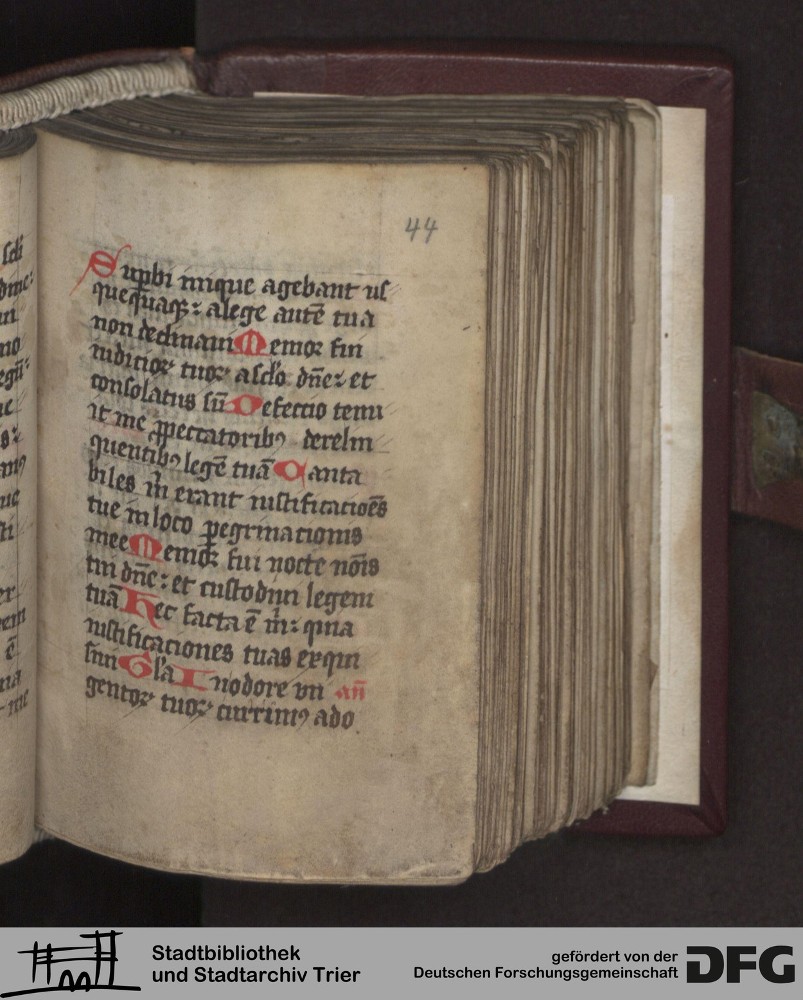 44
Supbi inique agebant us
quequaqȝ: a lege autē tua
non declinaui Memor fui
iudicioꝝ tuoꝝ a sclo dn̄e: et
consolatus sū Defeccio tenu
it me ꝓ peccatoribꝰ derelin
quentibꝰ legē tuā Canta
biles m̄ erant iustificatioēs
tue in loco ꝑegrinacionis
mee Memor fui nocte nōis
tui dn̄e: et custodiui legem
tuā Hec facta ē m̄: quia
iustificaciones tuas exqui
siui Gl'a In odore vn an̄
gentoꝝ tuoꝝ currimꝰ ado
Stadtbibliothek
und Stadtarchiv Trier
gefördert von der
Deutschen Forschungsgemeinschaft
DFG